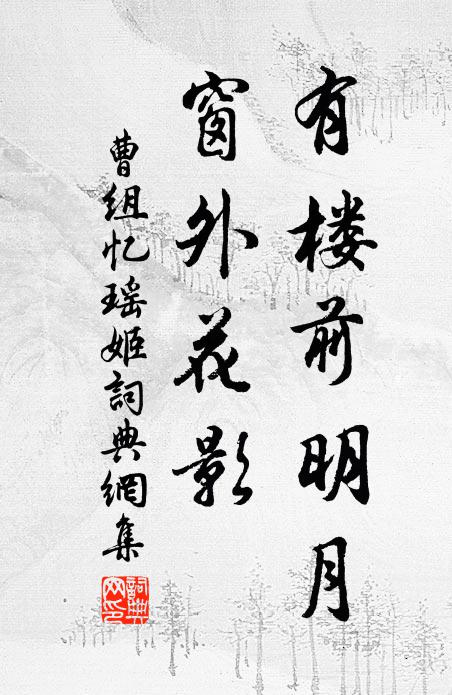 有楼前明月
窗外花影
曹组忆瑶姬詞典網集
詞典
网印